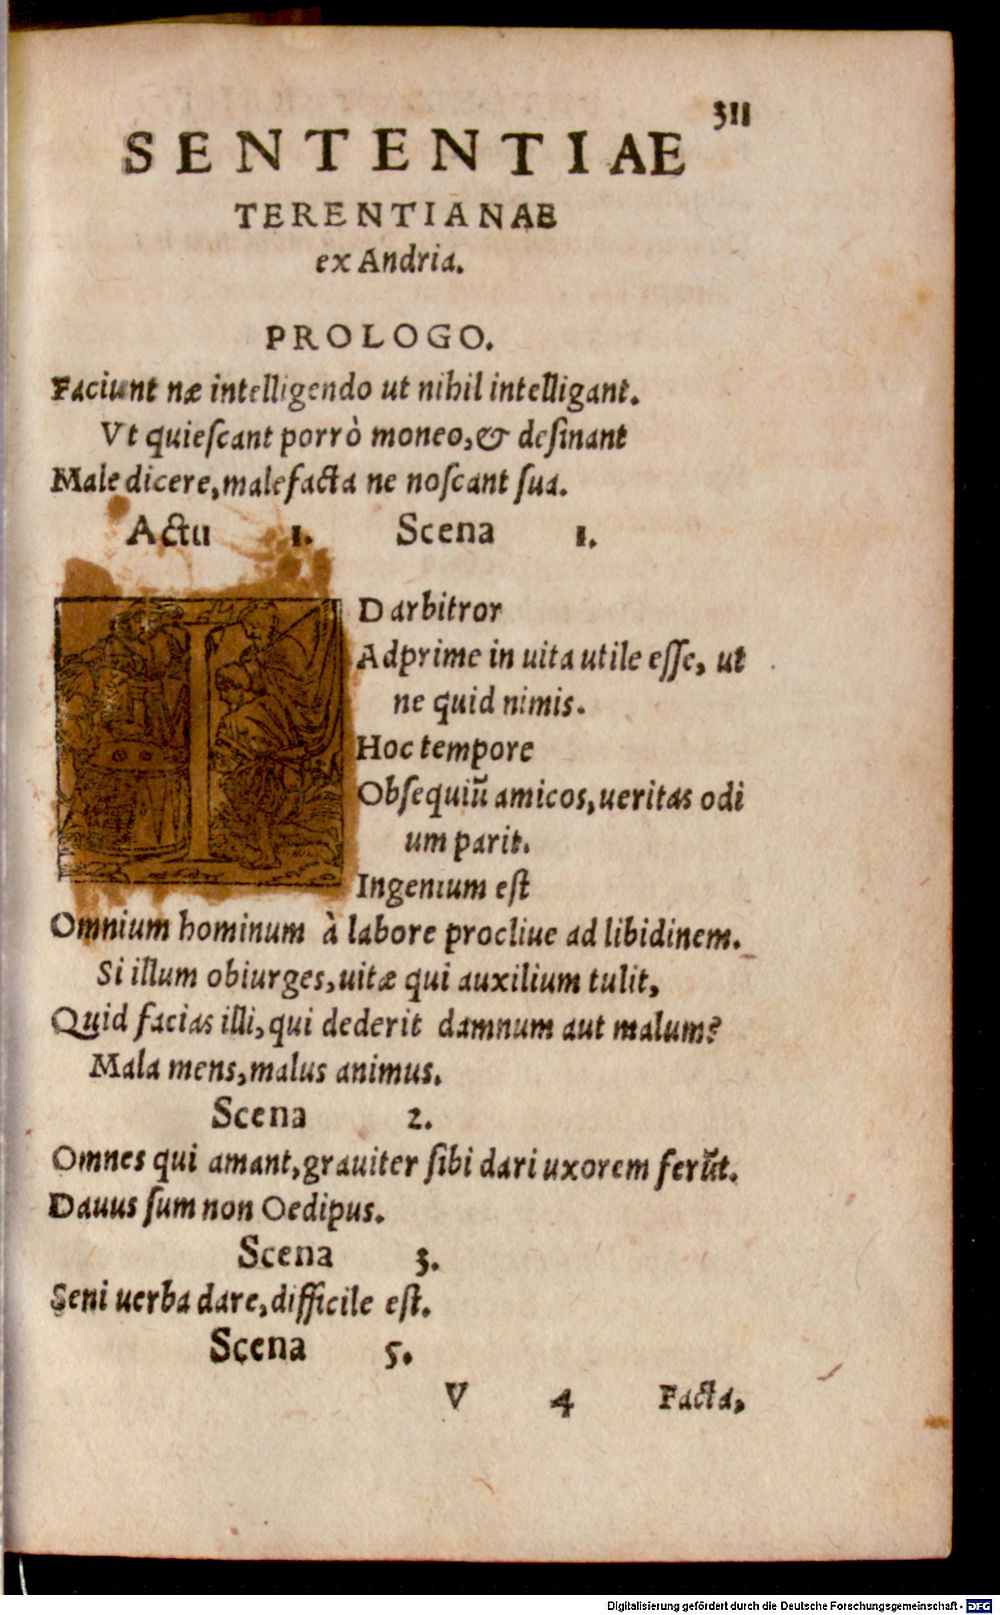 311
SENTENTIAE
TERENTIANAE
ex Andria.
PROLOGO.
Faciunt næ intelligendo ut nihil intelligant.
Vt quieſcant porrò moneo, & deſinant
Male dicere, malefacta ne noſcant ſua.
Actu 1. Scena 1.
ID arbitror
Adprime in uita utile eſſe, ut
ne quid nimis.
Hoc tempore
Obſequiū amicos, ueritas odi
um parit.
Ingenium eſt
Omnium hominum à labore procliue ad libidinem.
Si illum obiurges, uitæ qui auxilium tulit,
Quid facias illi, qui dederit damnum aut malum?
Mala mens, malus animus.
Scena 2.
Omnes qui amant, grauiter ſibi dari uxorem ferūt.
Dauus ſum non Oedipus.
Scena 3.
Seni uerba dare, difficile eſt.
Scena 5.
V 4 Facta,
Digitalisierung gefördert durch die Deutsche Forschungsgemeinschaft - DFG